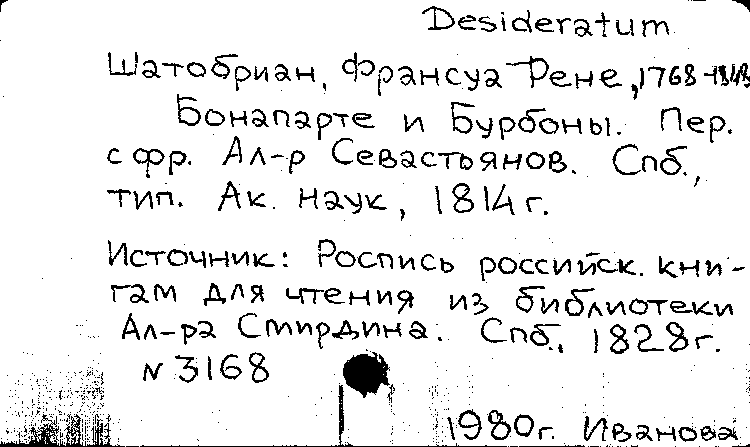 Desideratum
Шатобриан, Франсуа Рене, 1768-1848
Бонапарте и Бурбоны. Пер.
с фр. Ал-р Севастьянов. Спб.,
тип. Ак. наук, 1814 г.
Источник: Роспись российск. кни-
гам для чтения из библиотеки
Ал-ра Смирдина. Спб., 1828 г.
N 3168
1980 г. Иванова